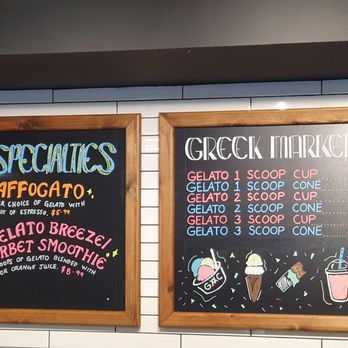 SPECIALTIES
AFFOGATO
CHOICE OF GELATO WITH
OF ESPRESSO. $5.99
GELATO BREEZE/
SMOOTHIE
OF GELATO BLENDED WITH
OR ORANGE JUICE. $8.99
GREEK MARKE
GELATO 1 SCOOP CUP
GELATO 1 SCOOP CONE
GELATO 2 SCOOP CUP
GELATO 2 SCOOP CONE
GELATO 3 SCOOP CUP
GELATO 3 SCOOP CONE